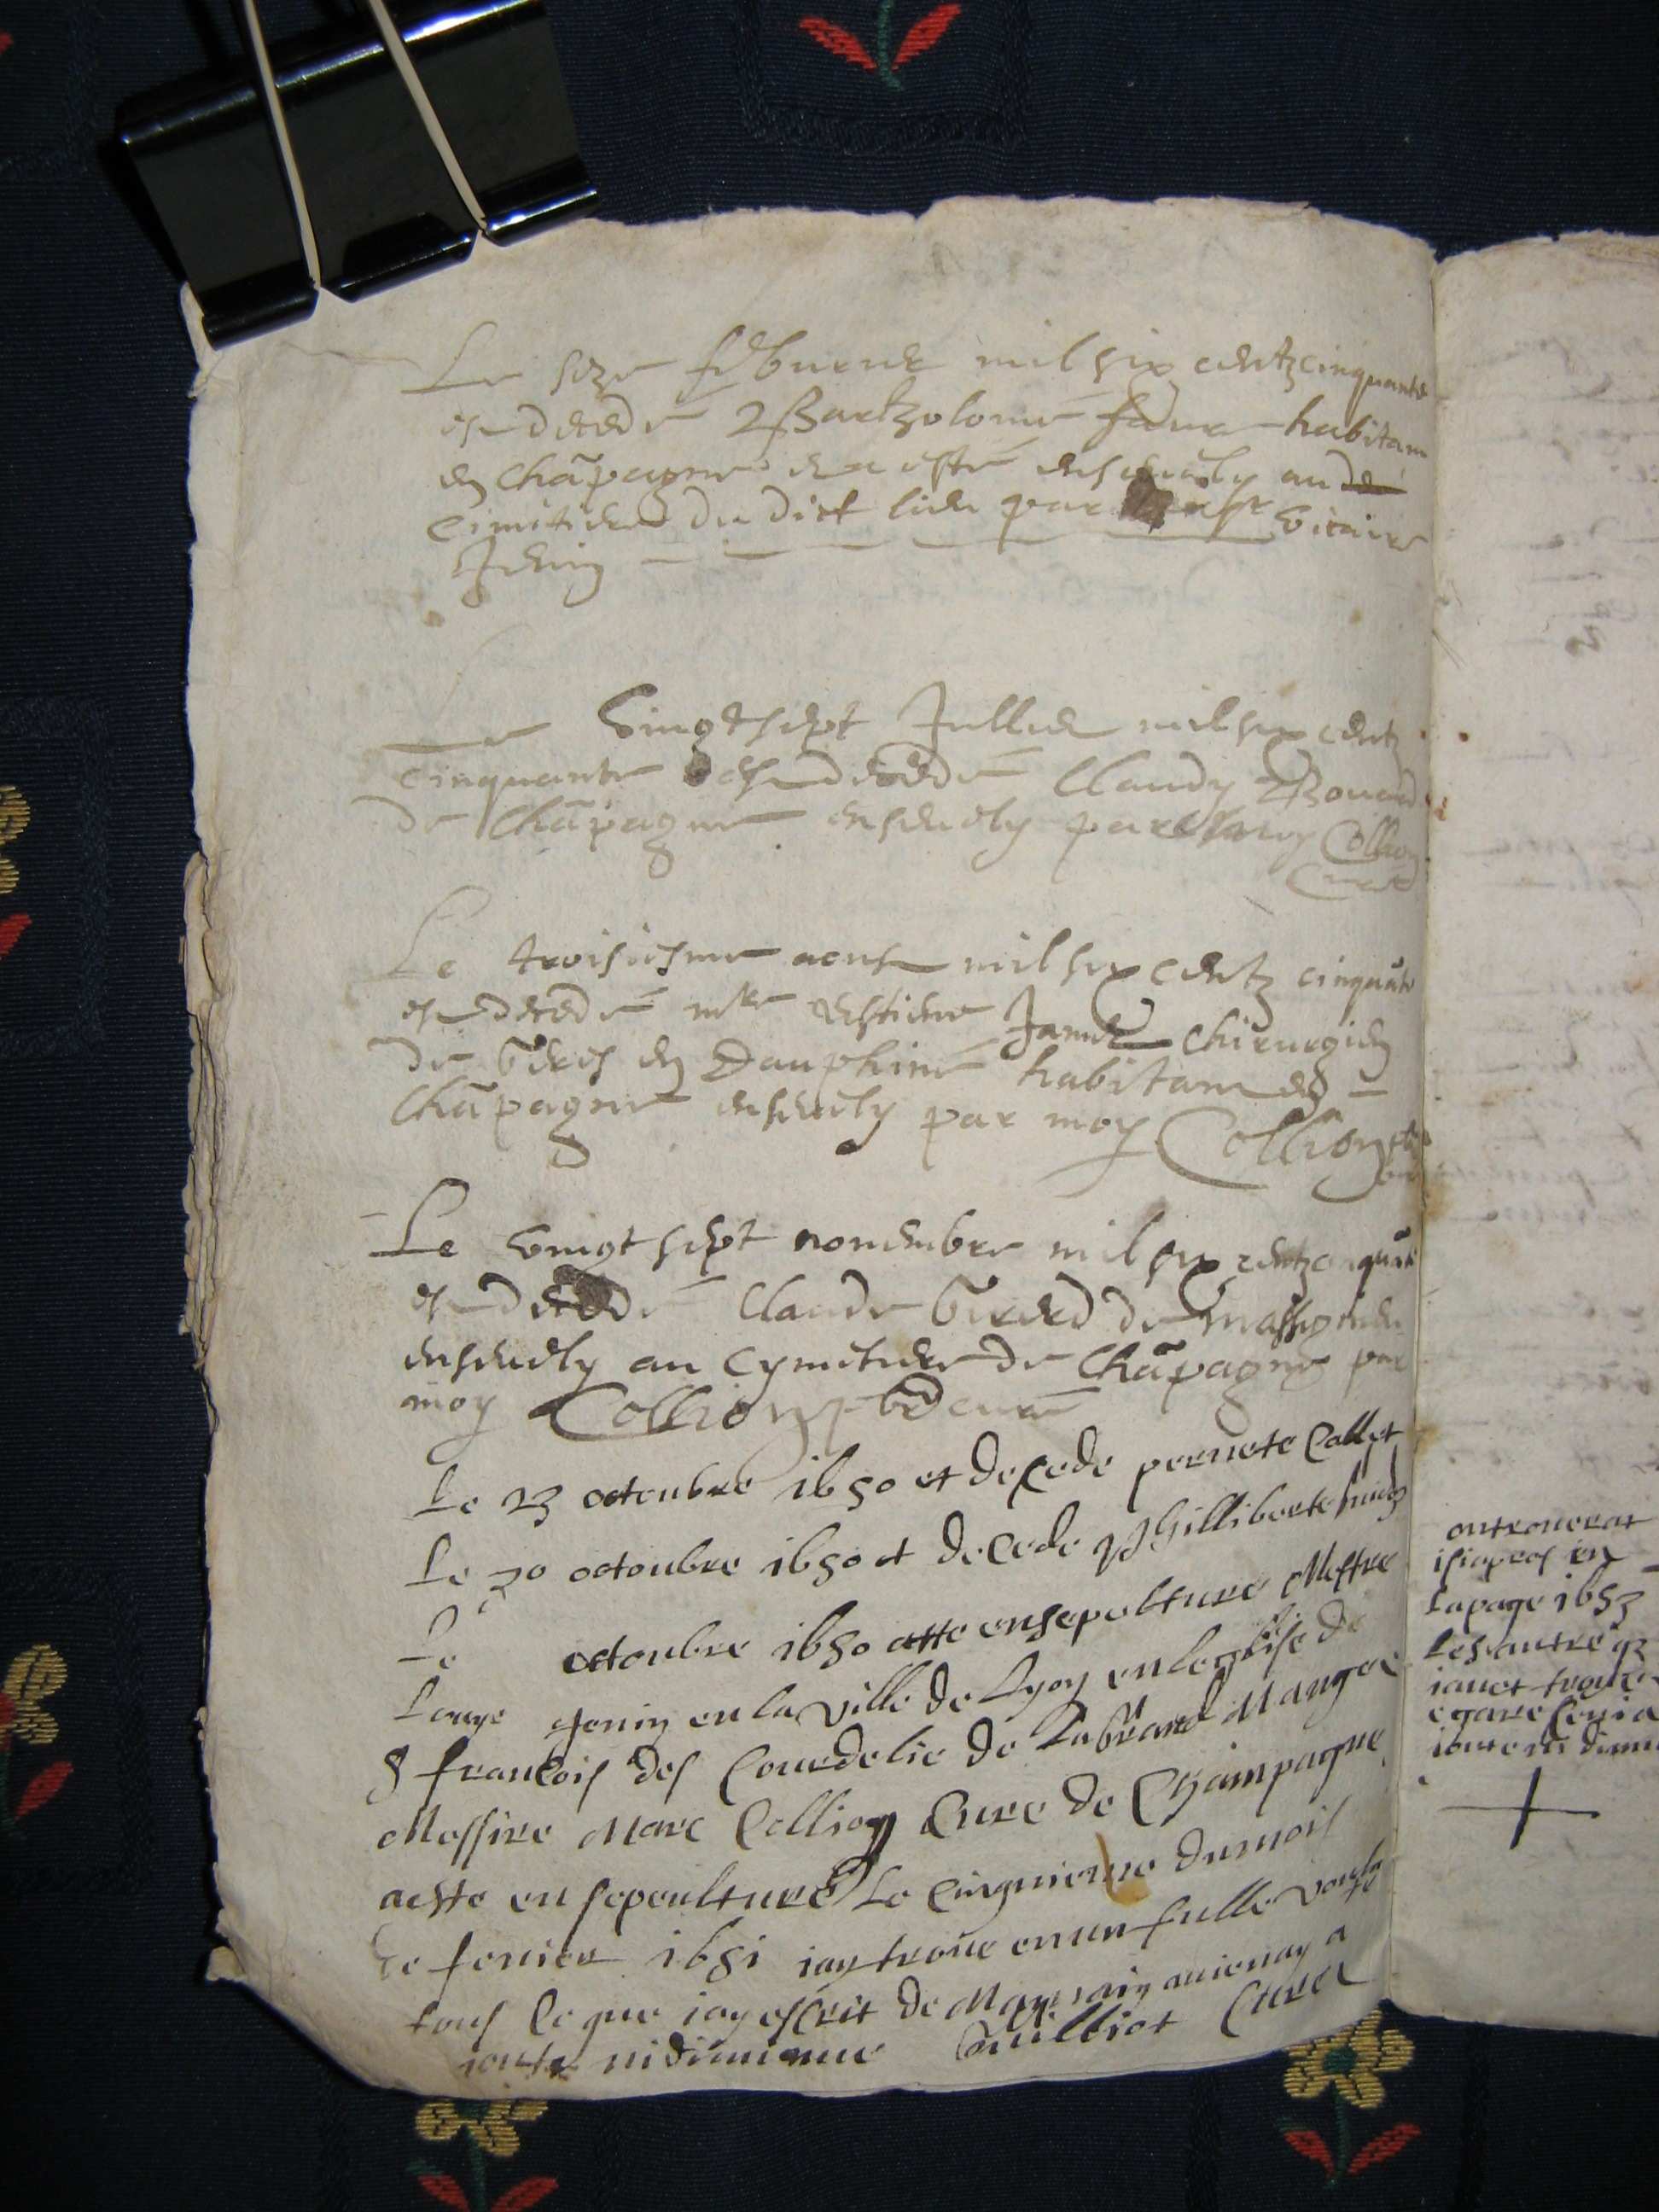 Le seze febvrier mil six centz cinquante
est decedé Bartholomé favre habitant
en Chãpagne et a esté ensevely au
cimitiere du dict lieu par vicaire
Jenin
Le vingt sept Jullet mil six centz
cinquante est decedé Claudy
de Chãpagne ensevely par moy Collion
curé
Le troisiesme aoust mil six centz cinquãte
est decedé mtre estiene Janier chirurgien
de en Dauphiné habitant en
Chãpagne ensevely par moy Collion
Le vingt sept novembre mil six centz cinquãte
est decedé Claude de massignieu
ensevely au Cymetiere de Chãpagne par
moy Collion curé
Le 23 octoubre 1650 et decede pernete Collet
Le 30 octoubre 1650 et decede philliberte
Le octoubre 1650 atte ensepolture Mestre
Louys Jenin en la ville de Lyon en leglise de
S francois des Courdelie de
Messire Marc Collion Cure de Champagne
aeste ensepoulture Le cinquieme du mois
de fevrier 1651 iay trouve en un fulle
tous ce que iay escrit de Ma main a
ioute ni diminue Cure
ontrouverat
isiapres en
Lapage 1653
Les autre q
iavet trouve
egare
ioute ni dimi